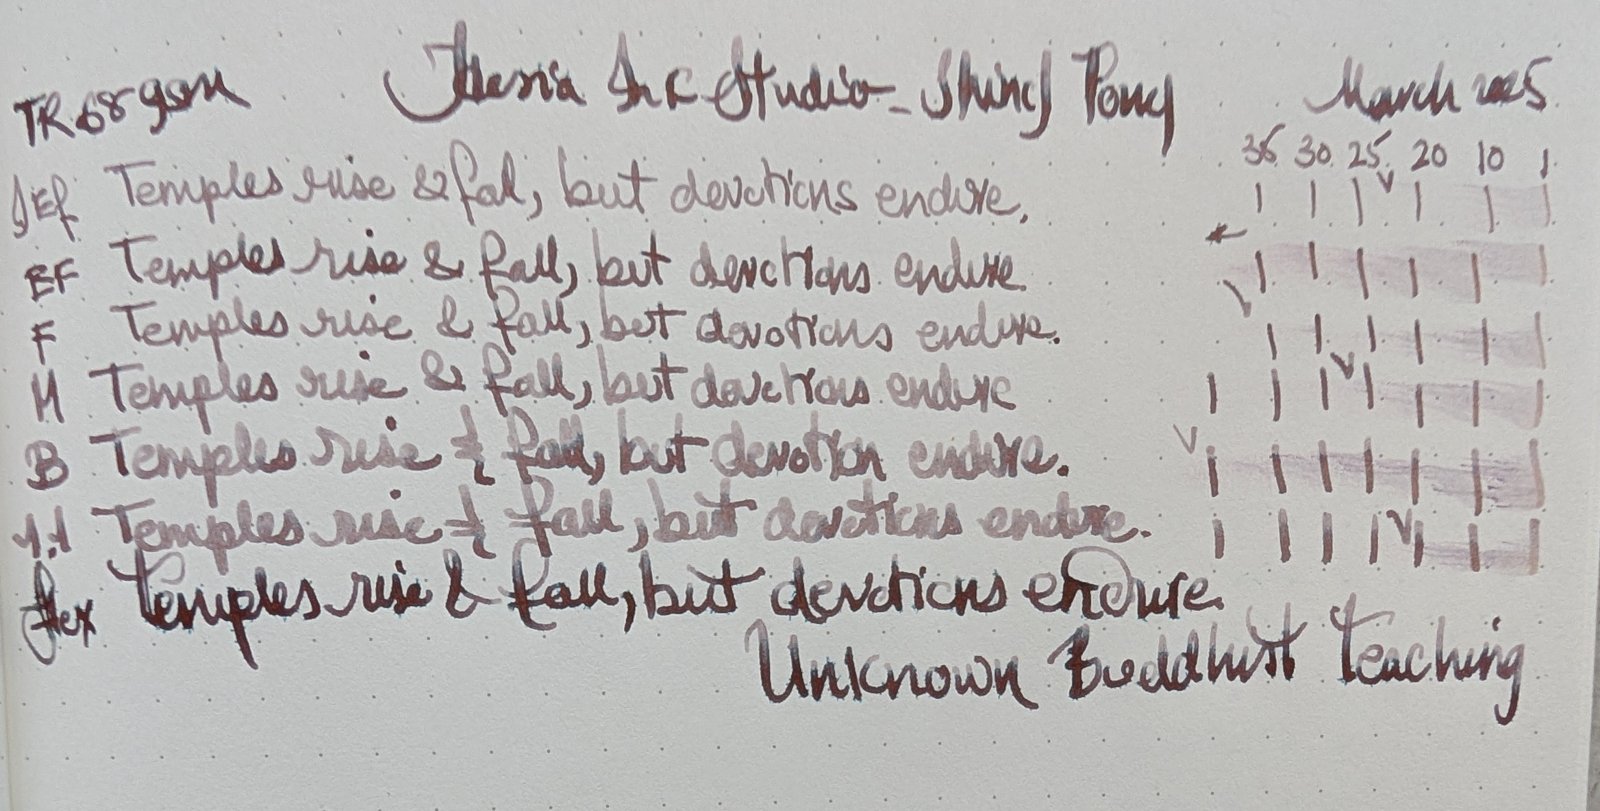 TR 68 gsm Tlesia Ink Studio - Shiny Pony March 2025
35 30 25 20 10 1
JEF Temples rise & fall, but devotions endure.
EF Temples rise & fall, but devotions endure
F Temples rise & fall, but devotions endure.
M Temples rise & fall, but devotions endure
B Temples rise & fall, but devotion endure.
1.1 Temples rise & fall, but devotions endure.
flex Temples rise & fall, but devotions endure.
Unknown Buddhist Teaching